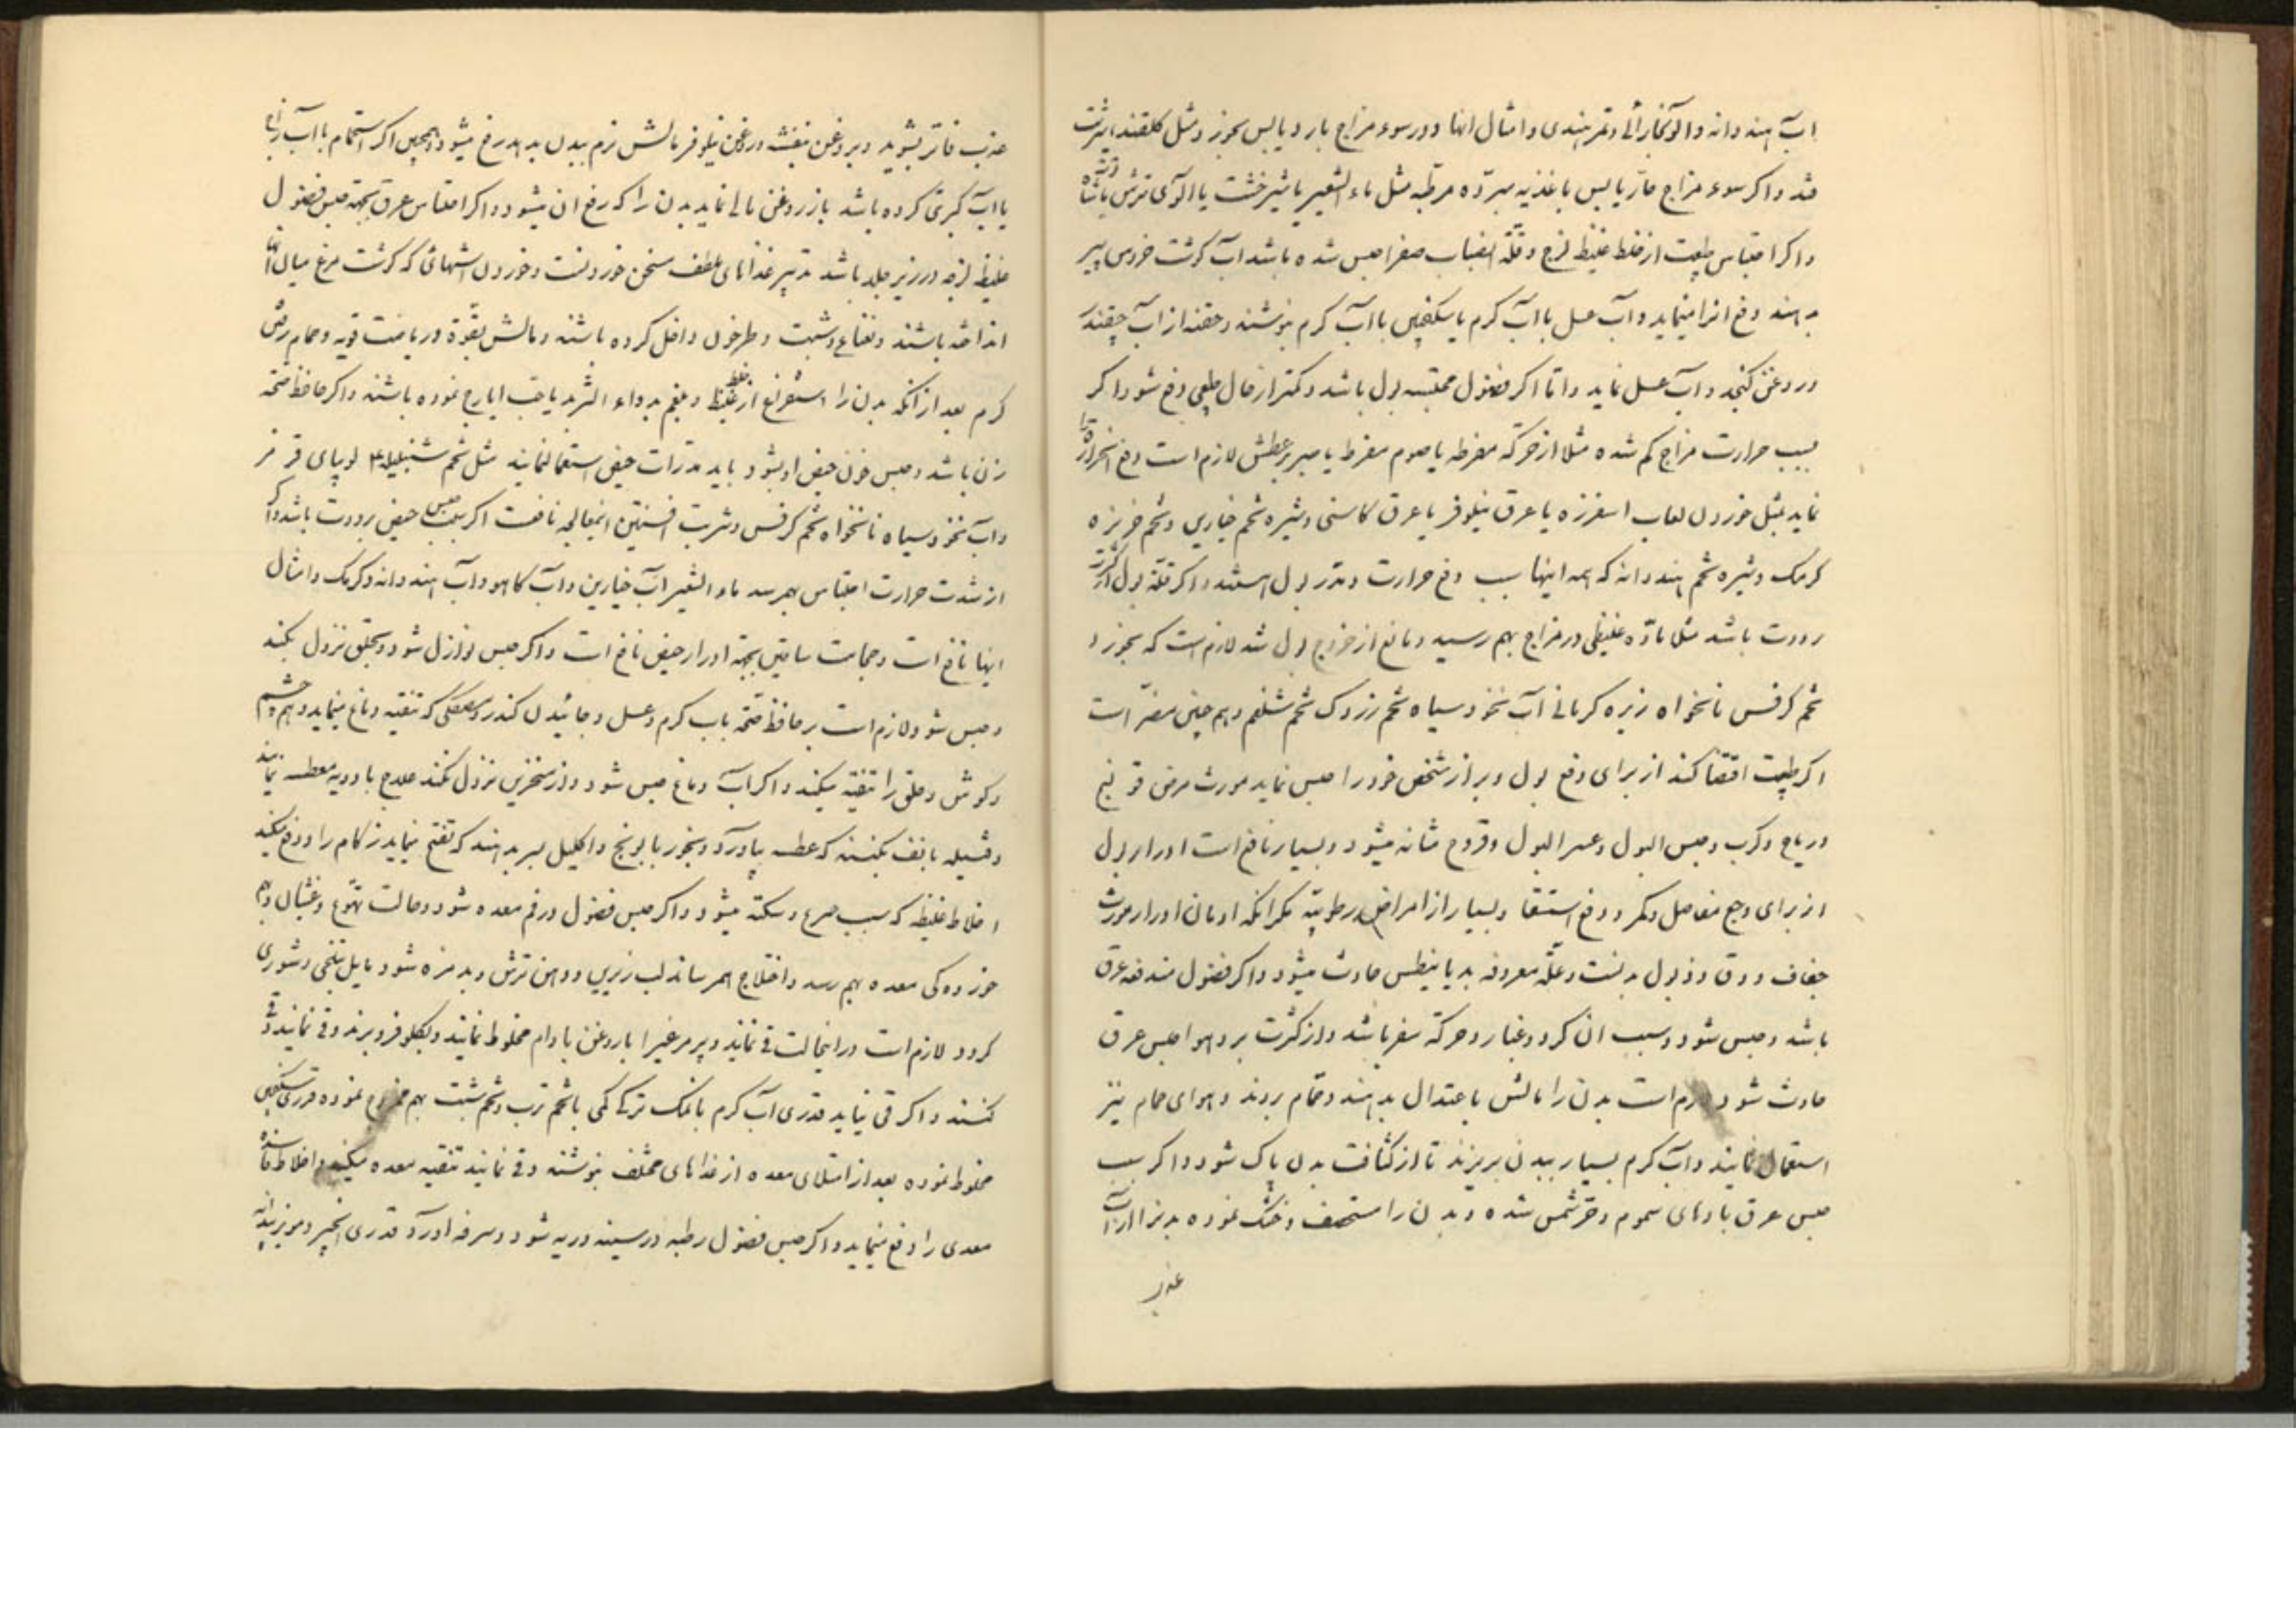 آب هندوانه و آلو بخارائی و تمر هندی و امثال انها و در سوء مزاج بارد یابس بجوز و مثل کلقند شربت
قند و اکر سوء مزاج حار یابس باغذیه مبرّده مرطّبه مثل ماء الشعیر یا شیرخشت یا الوی ترش
و اکر احتباس طبیعت از خلط غلیظ لزج و قلّة انصباب صفرا حبس شده باشد آب کوشت خروس پیر
بدهند دفع انرا مینماید و آب عسل با آب کرم یا سکنجبین با آب کرم بنوشند و حقنه از آب چقندر
و روغن کنجد و آب عسل نماید و اما اکر فضول محتبسه بول باشد و کمتر از حال طبیعی دفع شود اکر
بسبب حرارت مزاج کم شده مثلا از حرکة مفرطه یا صوم مفرط یا صبر بر عطش لازم است دفع انحرارت را
نماید بمثل خوردن لعاب اسفرزه یا عرق نیلوفر یا عرق کاسنی و شیره تخم خیاری و تخم خربزه
کرمک و شیره تخم هندوانه که همه اینها سبب دفع حرارت و مدّر بول هستند و اکر قلّة بول از کثرت
برودت باشد مثلا مادّه غلیظی در مزاج بهم رسید و مانع از خروج بول شد لازم است که بخورد
تخم کرفس نانخواه زیره کرمانی آب نخود سیاه تخم زردک تخم شلغم و هم چنین مضرّ است
اکر طبیعت اقتضا کند از برای دفع بول و براز شخص خود را حبس نماید مورث مرض قولنج
و ریاح و کرب و حبس البول و عسر البول و قروح مثانه میشود و بسیار نافع است ادرار بول
از برای وجع مفاصل و کمر و دفع استسقا و بسیار از امراض رطوبیّه مکر انکه ادمان ادرار مورث
جفاف و دق و ذبول بدنست و علّة معروفه بدیابیطس حادث میشود و اکر فضول مندفعه عرق
باشد و حبس شود و سبب ان کرد و غبار و حرکة سفر باشد و از کثرت برد هوا حبس عرق
حادث شود لازم است بدن را مالش باعتدال بدهند و حمّام روند و هوای حمام نیز
استعمال نمایند و آب کرم بسیار ببدن بریزند تا از کثافت بدن پاک شود و اکر سبب
حبس عرق بادهای سموم و حرّ شمس شده و بدن را مستحصف و خشک نموده بدنرا از آب
عذب
عذب فاتر بشوید و بروغن بنفشه و روغن نیلوفر مالش نرم ببدن بدهد رفع میشود و همچنین اکر استحمام با آب زاج
یا آب کبریتی کرده باشد باز روغن مالی نماید بدن را که رفع ان میشود و اکر احتباس عرق بجهة حبس فضول
غلیظه لزجه در زیر جلد باشد تدبیر غذاهای ملطف مسخن خوردنست و خوردن اشهائی که کوشت مرغ میان انها
انداخته باشند و نعناع و شبت و طرخون داخل کرده باشند و مالش بقوّة و ریاضت قویه و حمام رفتن
کرم بعد از انکه بدن را استفراغ از خلط غلیظ و بلغم بدواء التربد یا حب ایارج نموده باشند و اکر حافظ صحّه
زن باشد و حبس خون حیض او بشود باید مدّرات حیض استعمال نمایند مثل تخم شنبلیله لوبیای قرمز
و آب نخود سیاه نانخواه تخم کرفس و شربت افسنتین اینمعالجه نافعست اکر سبب حبس حیض برودت باشد و اکر
از شدت حرارت احتباس بهمرسد ماء الشعیر آب خیارین و آب کاهو و آب هندوانه و کرمک و امثال
اینها نافع است و حجامت ساقین بجهة ادرار حیض نافع است و اکر حبس نوازل شود و بحلق نزول نکند
و حبس شود لازم است بر حافظ صحّه باب کرم و عسل و جائیدن کندر و مصطکی که تنقیه دماغ مینماید و هم چشم
و کوش و حلق را تنقیه میکند و اکر آب دماغ حبس شود و از منخرین نزول نکند علاج با دویه معطسه نمایند
و فتیله بانف بکنند که عطسه بیاورد و بخور بابونج و اکلیل بسر بدهند که تفتح نماید زکام را و دفع میکند
اخلاط غلیظه که سبب صرع و سکته میشود و اکر حبس فضول در فم معده شود و حالت تهوّع و غثیان و بهم
خوردکی معده بهم رسد و اختلاج بهمرساند لب زیرین و دهن ترش و بدمزه شود مایل بتلخی و شوری
کردد لازم است در اینحالت قی نماند و پر مرغیرا با روغن بادام مخلوط نمایند و بکلو فرو برند و قی نمایند
کنند و اکر قی نیاید قدری آب کرم با نمک ترکی کمی با تخم ترب و تخم شبت بهم ممزوج نموده قدری سکنجبین
مخلوط نموده بعد از امتلای معده از غذاهای مختلف بنوشند و قی نمایند تنقیه معده میکند و اخلاط فاسده
معدی را دفع مینماید و اکر حبس فضول رطبه در سینه و ریه شود و سرفه اورد قدری انجیر و مویز بیدانه